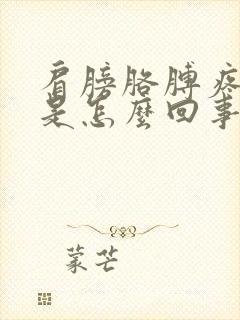 肩膀胳膊疼
是怎麼回事
蒙芒